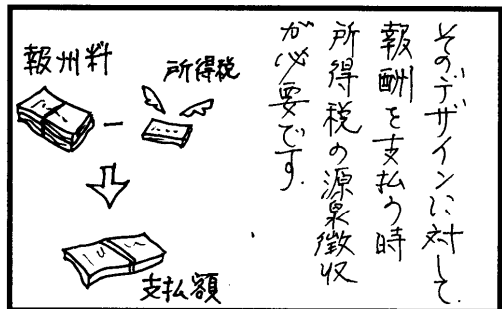 そのデザインに対して
報酬を支払う時
所得税の源泉徴収
が必要です.
報州料
所得税
支払額